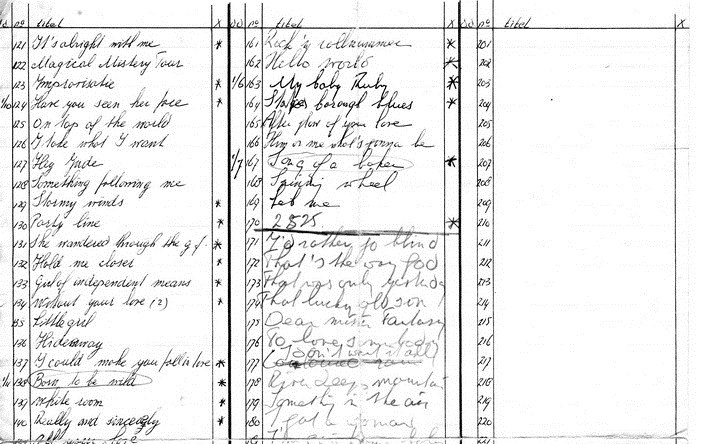 nº titel x
121 It's alright with me *
122 Magical Mistery Tour
123 Improvisatie *
124 Have you seen her face *
125 On top of the world
126 I take what I want
127 Hey Jude
128 Something following me
129 Stormy winds *
130 Party line *
131 She wandered through the g.f. *
132 Hold me closer *
133 Girl of independent means *
134 Without your love (2) *
135 Little girl
136 Hideaway
137 I could make you fall in love *
138 Born to be wild *
139 White room *
140 Really and sincerely *
nº titel x
161 Rock 'n roll *
162 Hello world *
1/6 163 My baby Ruby *
164 borough blues *
165 of your love
166 Him or me what's gonna be
1/7 167 Song of a baker *
168 Spinning wheel
169 Let me
170 2525 *
171 I'd rather go blind
172 That's the way God
173 That was only yesterday
174 That lucky old son
175 Dear mister Fantasy
176 To love somebody
177
178 River deep mountain
179 Something in the air
180 I got a woman
nº titel x
201
202
203
204
205
206
207
208
209
210
211
212
213
214
215
216
217
218
219
220